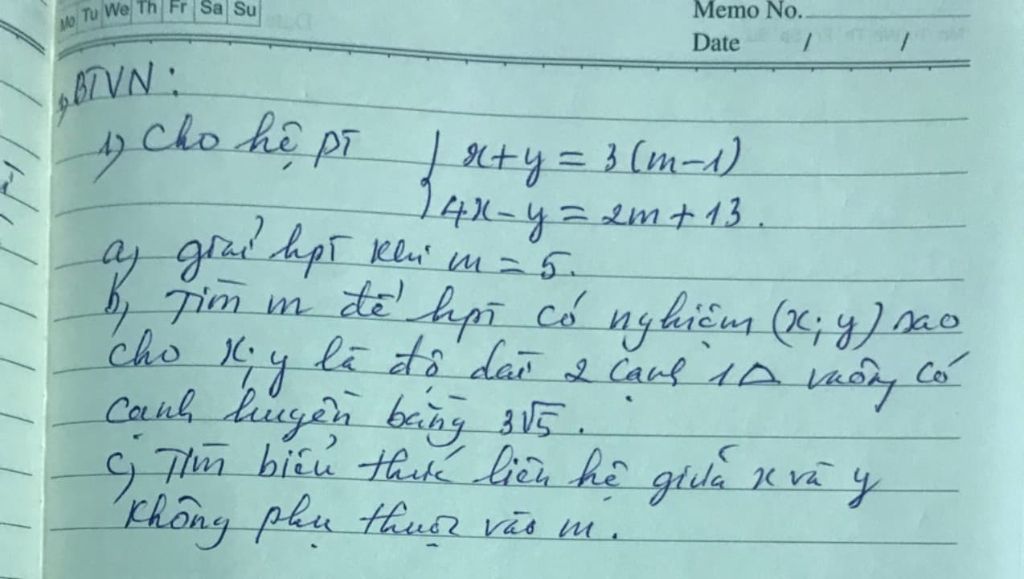 Mo Tu We Th Fr Sa Su
Memo No.
Date / /
BTVN:
1) Cho hệ pt { x+y = 3(m-1)
4x-y = 2m+13.
a) giải hpt khi m = 5.
b) Tìm m để hpt có nghiệm (x; y) sao
cho x; y là độ dài 2 cạnh 1Δ vuông có
cạnh huyền bằng 3√5.
c) Tìm biểu thức liên hệ giữa x và y
không phụ thuộc vào m.